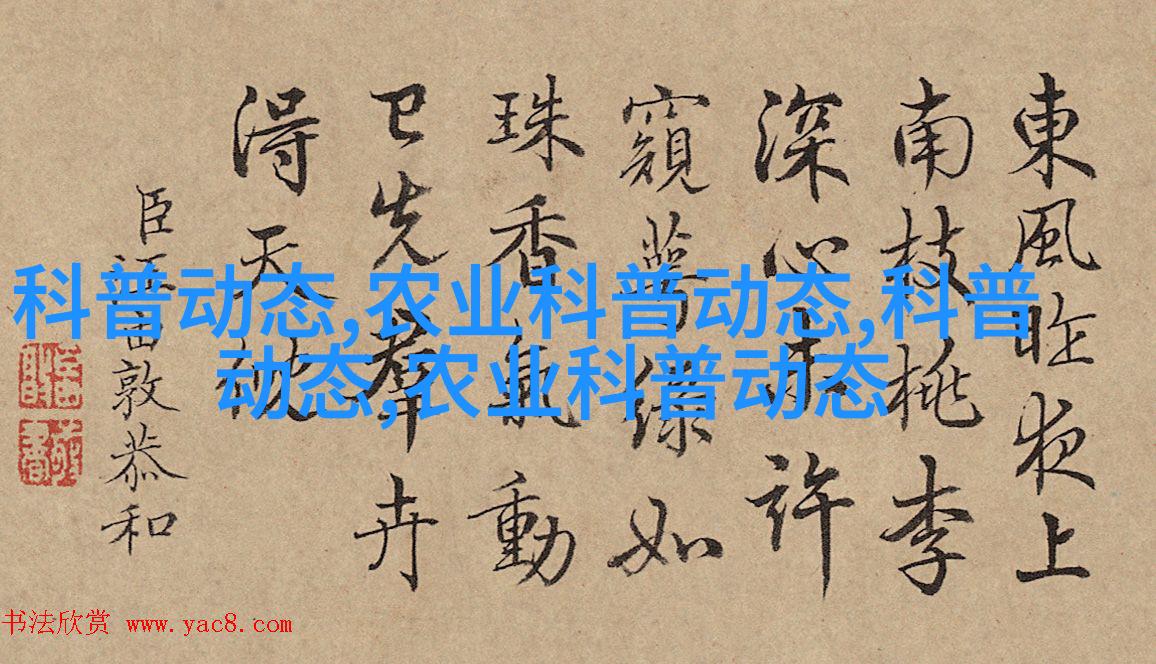 東風昨夜上
南枝桃李
深心未許
窺萼綠如
珠香氣動
已先羣卉
得天
臣汪由敦恭和
科普动态,农业科普动态,科普
动态,农业科普动态
书法欣赏 www.yac8.com